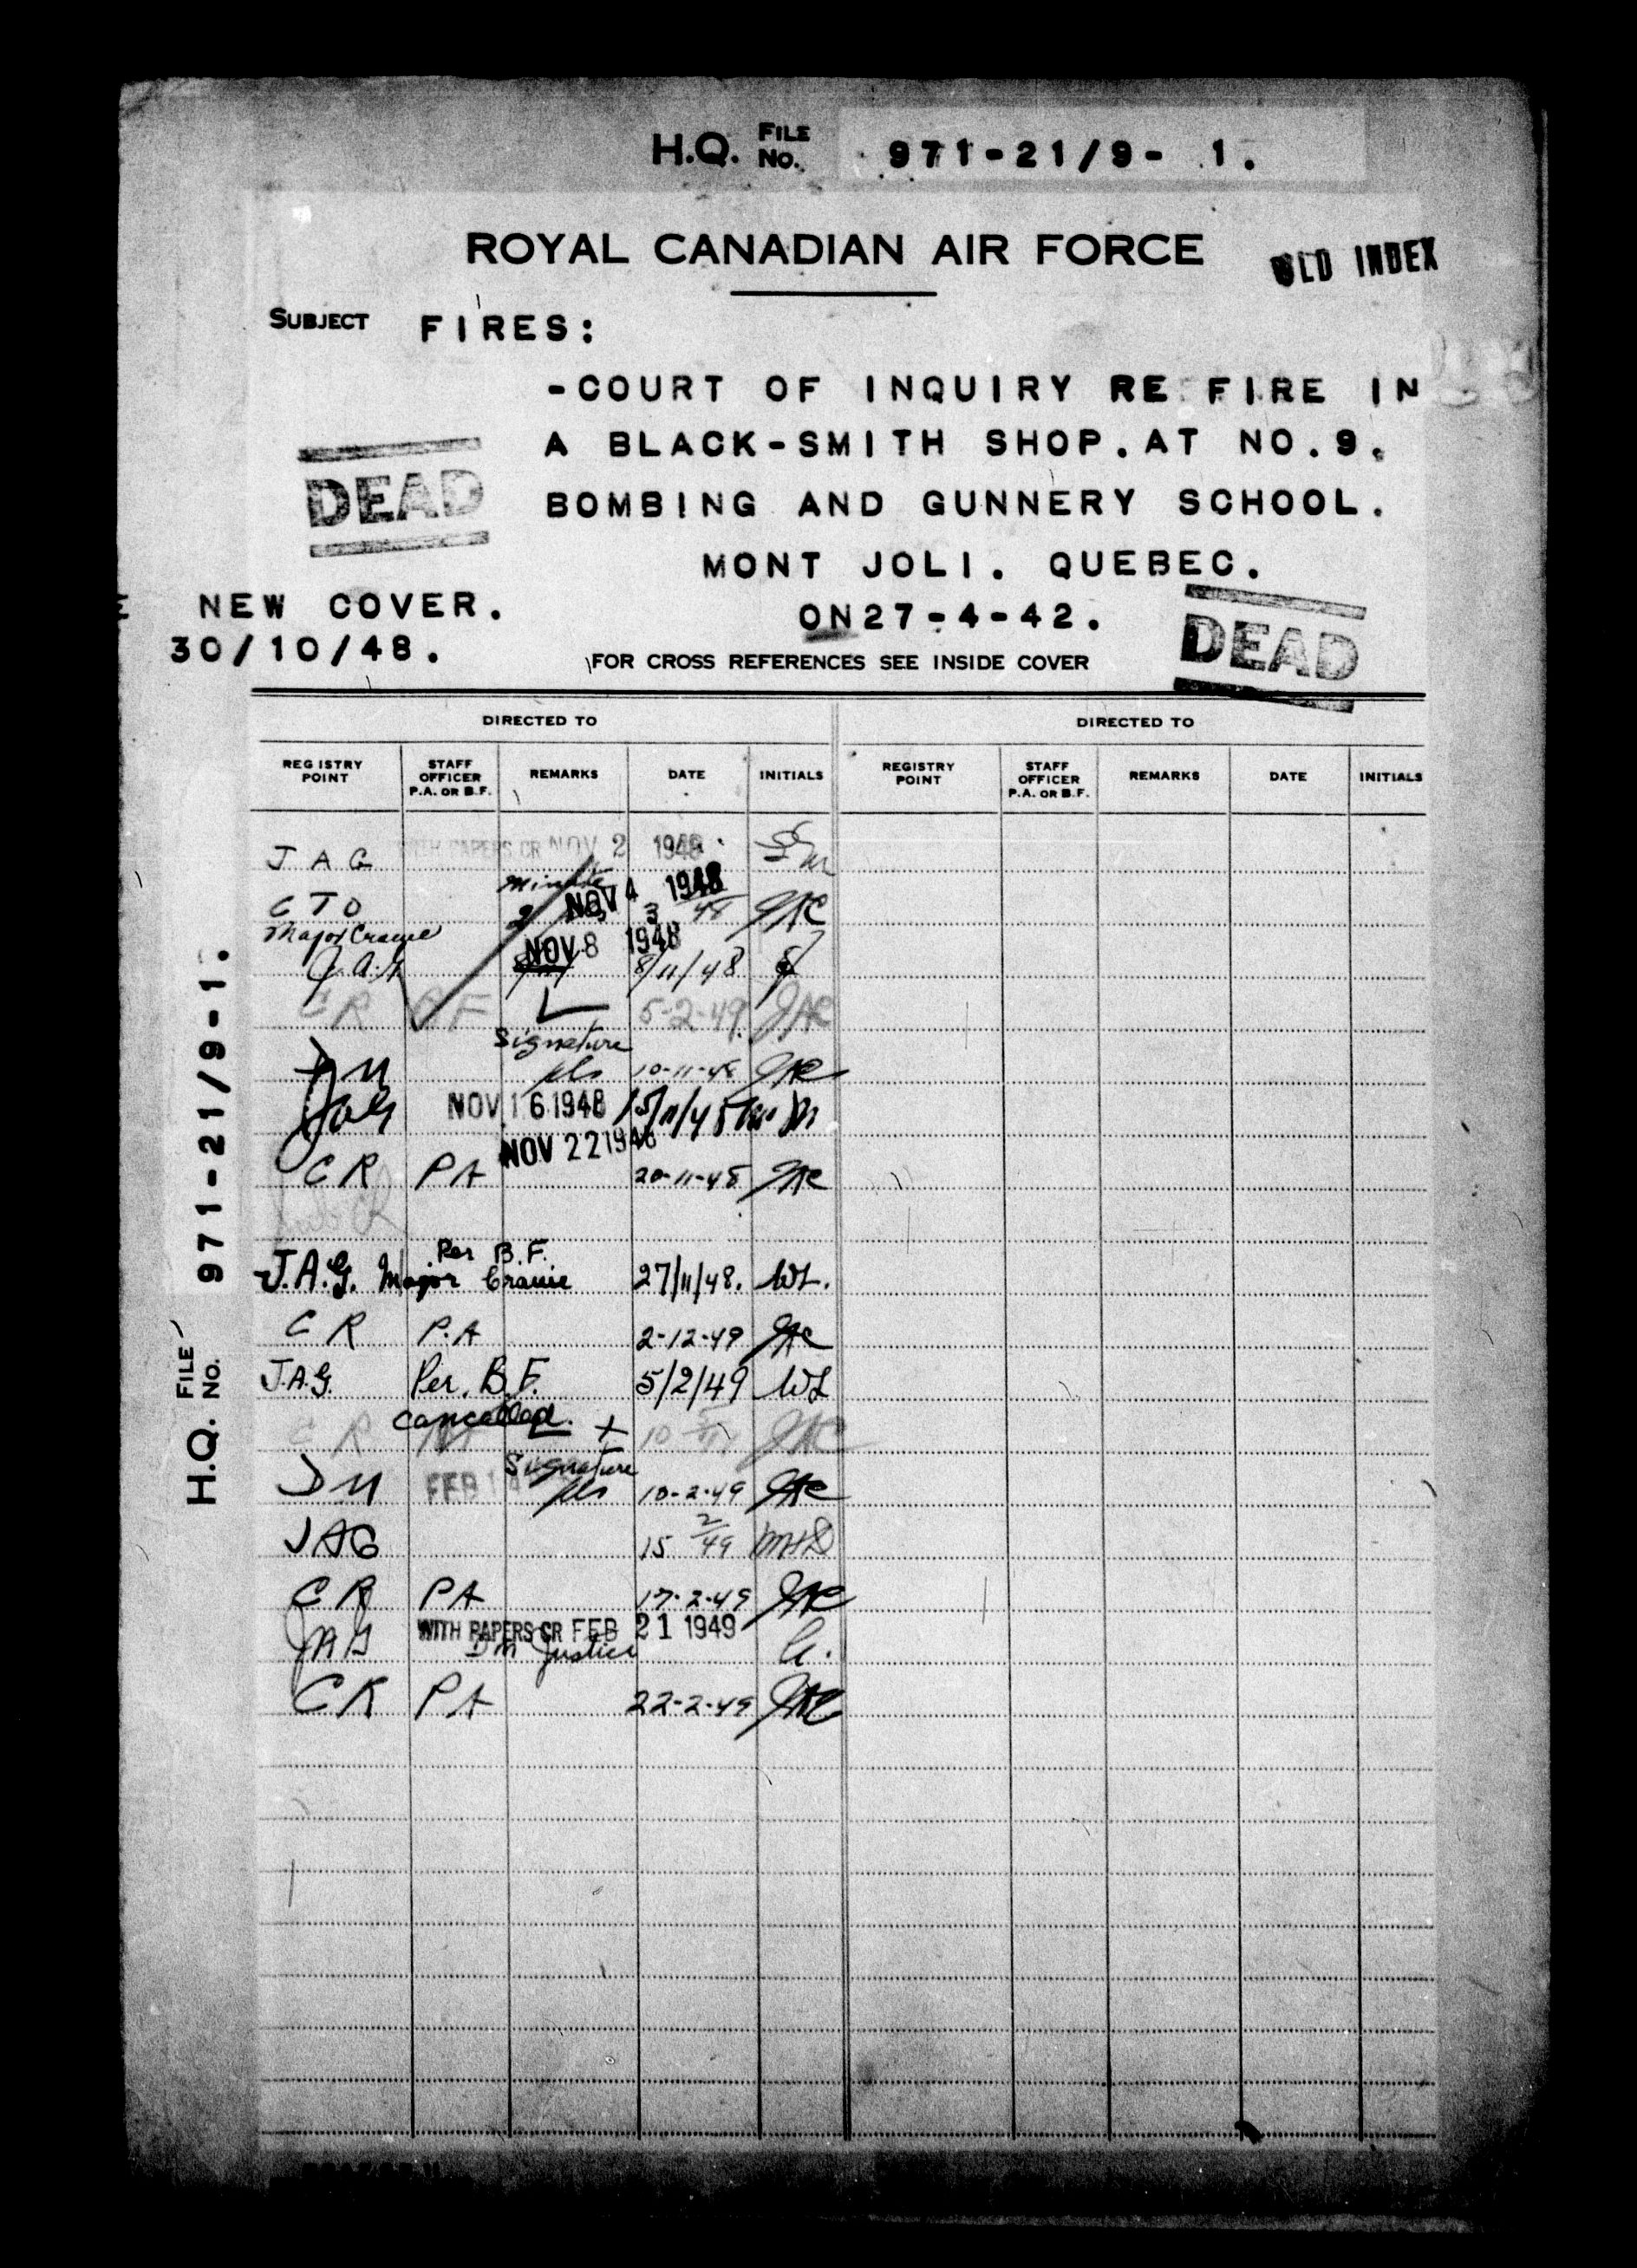 H.Q. FILE NO. 971-21/9- 1.
ROYAL CANADIAN AIR FORCE
OLD INDEX
SUBJECT FIRES:
-COURT OF INQUIRY RE FIRE IN
A BLACK-SMITH SHOP.AT NO.9.
DEAD
BOMBING AND GUNNERY SCHOOL.
MONT JOLI. QUEBEC.
NEW COVER. ON27-4-42.
30/10/48.
DEAD
FOR CROSS REFERENCES SEE INSIDE COVER
DIRECTED TO DIRECTED TO
REGISTRY POINT STAFF OFFICER P.A. OR B.F. REMARKS DATE INITIALS REGISTRY POINT STAFF OFFICER P.A. OR B.F. REMARKS DATE INITIALS
J A G WITH PAPERS CR NOV 2 1948
Minute
C T O NOV 4 1948
Major
NOV 8 1948
J.A.G 8/11/48
C R B F 5-2-49
Signature
DM 10-11-48
JAG NOV 16 1948 15/11/48
NOV 22 1948
C R P A 20-11-48
Per B.F.
J.A.G. Major 27/11/48. WL.
C R P.A 2-12-49
J.A.G. Per. B.F. 5/2/49 WL
cancelled.
C R 10
Signature
DM FEB 10-2-49
JAG 15 2/49
C R PA 17-2-49
WITH PAPERS CR FEB 21 1949
JAG DM Justice
C R PA 22-2-49
H.Q. FILE NO. 971-21/9-1.